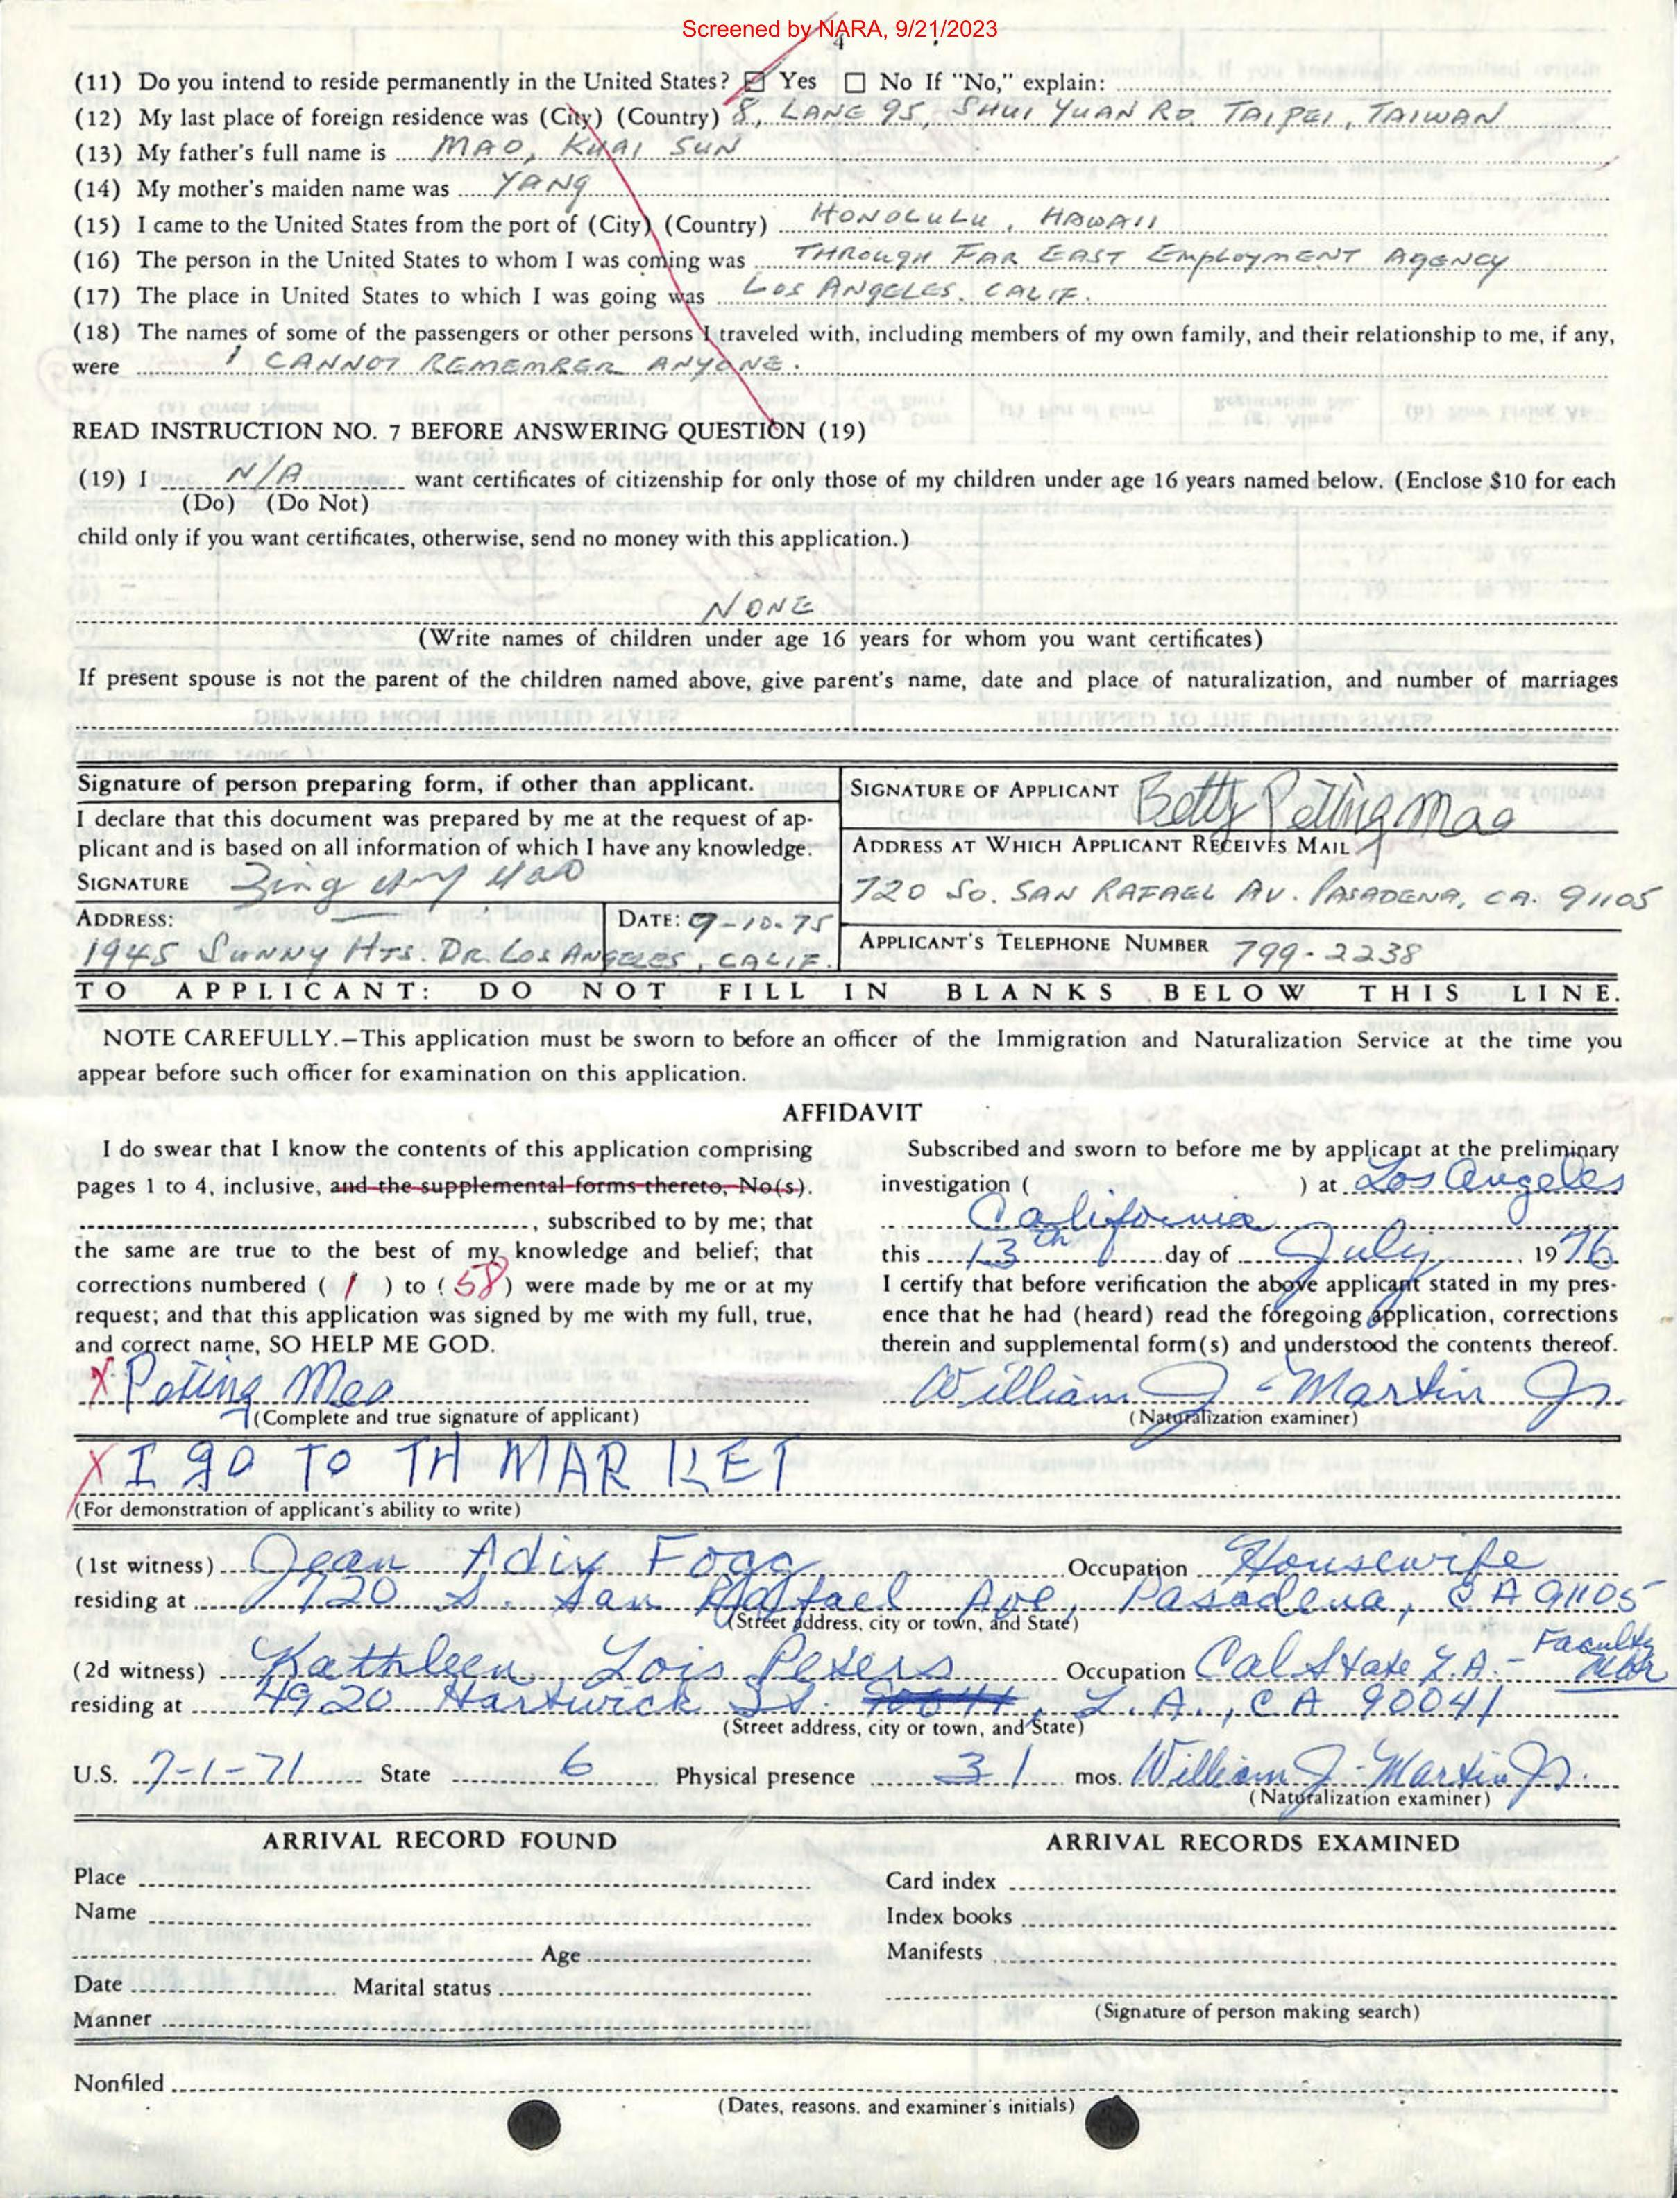 Screened by NARA, 9/21/2023
4
(11) Do you intend to reside permanently in the United States? ☑ Yes ☐ No If "No," explain:
(12) My last place of foreign residence was (City) (Country) 8, LANE 95, SHUI YUAN RD. TAIPEI, TAIWAN
(13) My father's full name is MAO, KUAI SUN
(14) My mother's maiden name was YANG
(15) I came to the United States from the port of (City) (Country) HONOLULU, HAWAII
(16) The person in the United States to whom I was coming was THROUGH FAR EAST EMPLOYMENT AGENCY
(17) The place in United States to which I was going was LOS ANGELES, CALIF.
(18) The names of some of the passengers or other persons I traveled with, including members of my own family, and their relationship to me, if any,
were I CANNOT REMEMBER ANYONE.
READ INSTRUCTION NO. 7 BEFORE ANSWERING QUESTION (19)
(19) I N/A want certificates of citizenship for only those of my children under age 16 years named below. (Enclose $10 for each
(Do) (Do Not)
child only if you want certificates, otherwise, send no money with this application.)
NONE
(Write names of children under age 16 years for whom you want certificates)
If present spouse is not the parent of the children named above, give parent's name, date and place of naturalization, and number of marriages
Signature of person preparing form, if other than applicant.
I declare that this document was prepared by me at the request of ap-
plicant and is based on all information of which I have any knowledge.
SIGNATURE
ADDRESS: DATE: 9-10-75
1945 SUNNY HTS. DR. LOS ANGELES, CALIF.
SIGNATURE OF APPLICANT Betty Peting Mao
ADDRESS AT WHICH APPLICANT RECEIVES MAIL
720 SO. SAN RAFAEL AV. PASADENA, CA. 91105
APPLICANT'S TELEPHONE NUMBER 799-2238
TO APPLICANT: DO NOT FILL IN BLANKS BELOW THIS LINE.
NOTE CAREFULLY.—This application must be sworn to before an officer of the Immigration and Naturalization Service at the time you
appear before such officer for examination on this application.
AFFIDAVIT
I do swear that I know the contents of this application comprising
pages 1 to 4, inclusive, and the supplemental forms thereto, No(s).
, subscribed to by me; that
the same are true to the best of my knowledge and belief; that
corrections numbered ( 1 ) to ( 58 ) were made by me or at my
request; and that this application was signed by me with my full, true,
and correct name, SO HELP ME GOD.
X Peting Mao
(Complete and true signature of applicant)
Subscribed and sworn to before me by applicant at the preliminary
investigation ( ) at Los Angeles
California
this 13th day of July, 1976
I certify that before verification the above applicant stated in my pres-
ence that he had (heard) read the foregoing application, corrections
therein and supplemental form(s) and understood the contents thereof.
William J. Martin Jr.
(Naturalization examiner)
X I go TO TH MARKET
(For demonstration of applicant's ability to write)
(1st witness) Jean Adix Fogg Occupation Housewife
residing at 720 S. San Rafael Ave, Pasadena, CA 91105
(Street address, city or town, and State)
(2d witness) Kathleen Lois Peters Occupation Cal State L.A. - Faculty Mbr
residing at 4920 Hartwick St. 90041, L.A., CA 90041
(Street address, city or town, and State)
U.S. 7-1-71 State 6 Physical presence 31 mos. William J. Martin Jr.
(Naturalization examiner)
ARRIVAL RECORD FOUND
Place
Name
Age
Date Marital status
Manner
ARRIVAL RECORDS EXAMINED
Card index
Index books
Manifests
(Signature of person making search)
Nonfiled
(Dates, reasons, and examiner's initials)